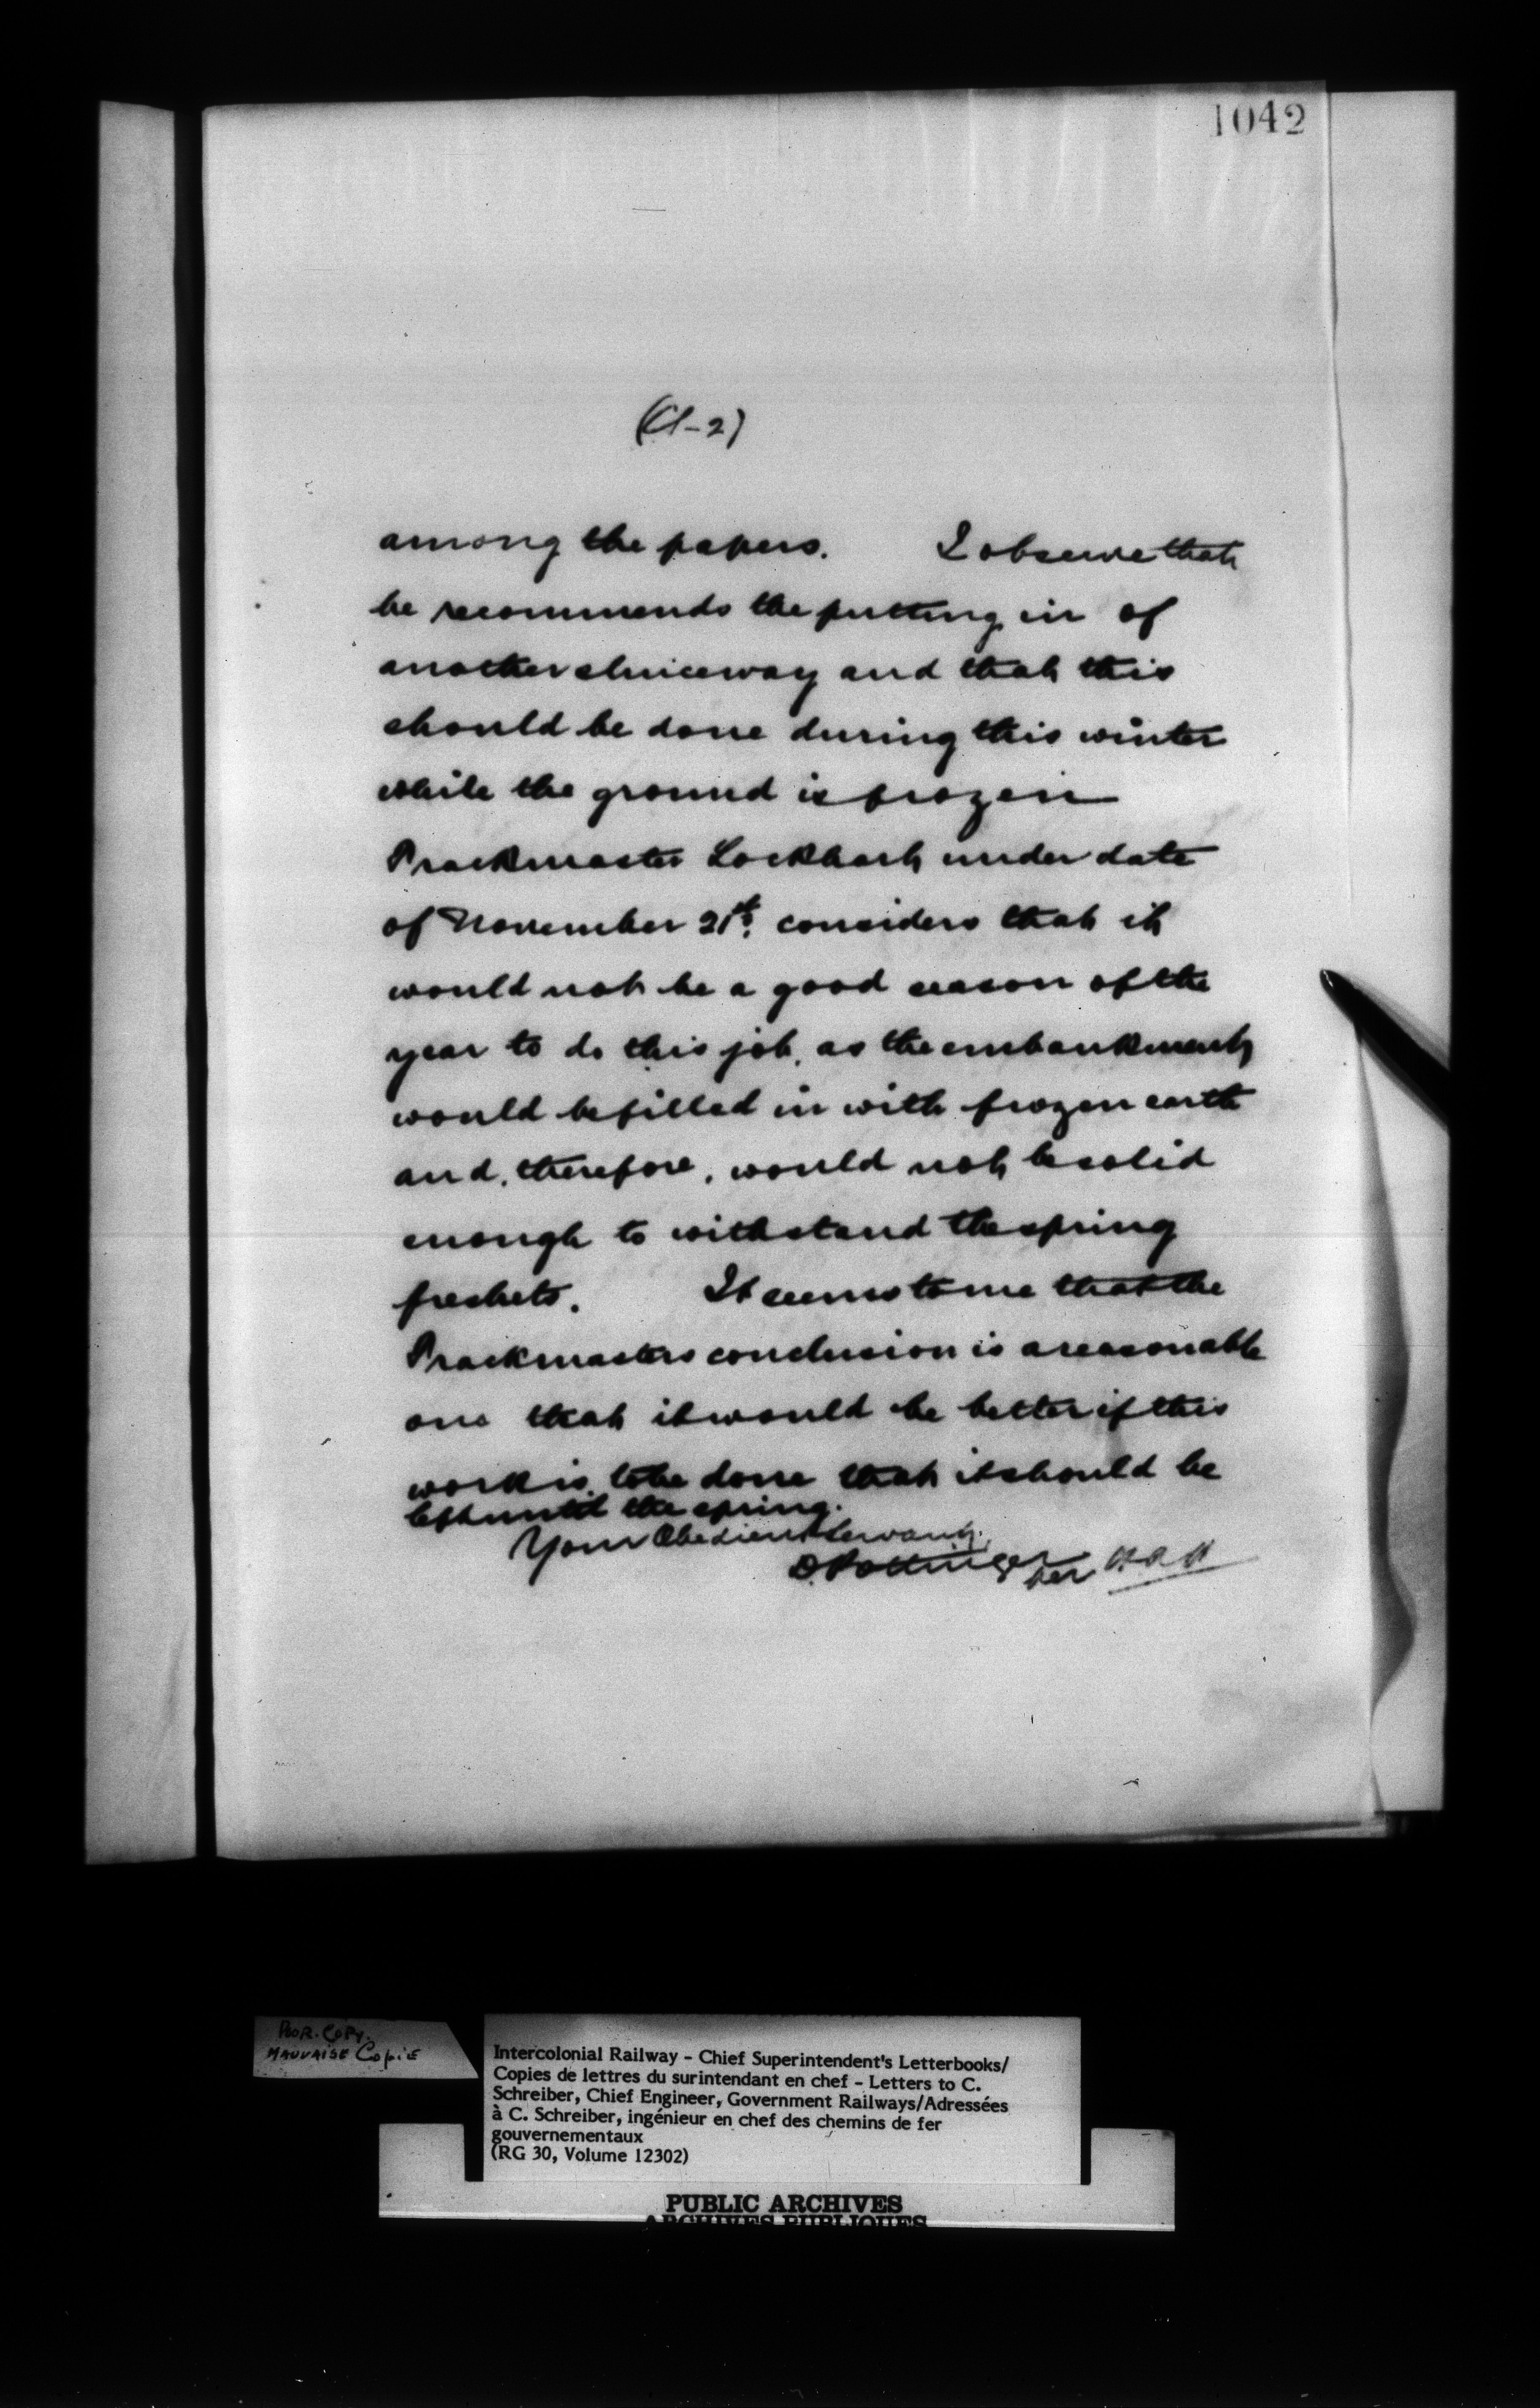 1042
(Cl-2)
among the papers. I observe that
he recommends the putting in of
another sluiceway and that this
should be done during this winter
while the ground is frozen
Trackmaster Lockhart under date
of November 21st. considers that it
would not be a good season of the
year to do this job, as the embankment
would be filled in with frozen earth
and, therefore, would not be solid
enough to withstand the spring
freshets. It seems to me that the
Trackmasters conclusion is a reasonable
one that it would be better if this
work is to be done that it should be
left until the spring.
Your Obedient Servant,
D. Pottinger per
POOR COPY.
MAUVAISE COPIE
Intercolonial Railway - Chief Superintendent's Letterbooks/
Copies de lettres du surintendant en chef - Letters to C.
Schreiber, Chief Engineer, Government Railways/Adressées
à C. Schreiber, ingénieur en chef des chemins de fer
gouvernementaux
(RG 30, Volume 12302)
PUBLIC ARCHIVES
ARCHIVES PUBLIQUES